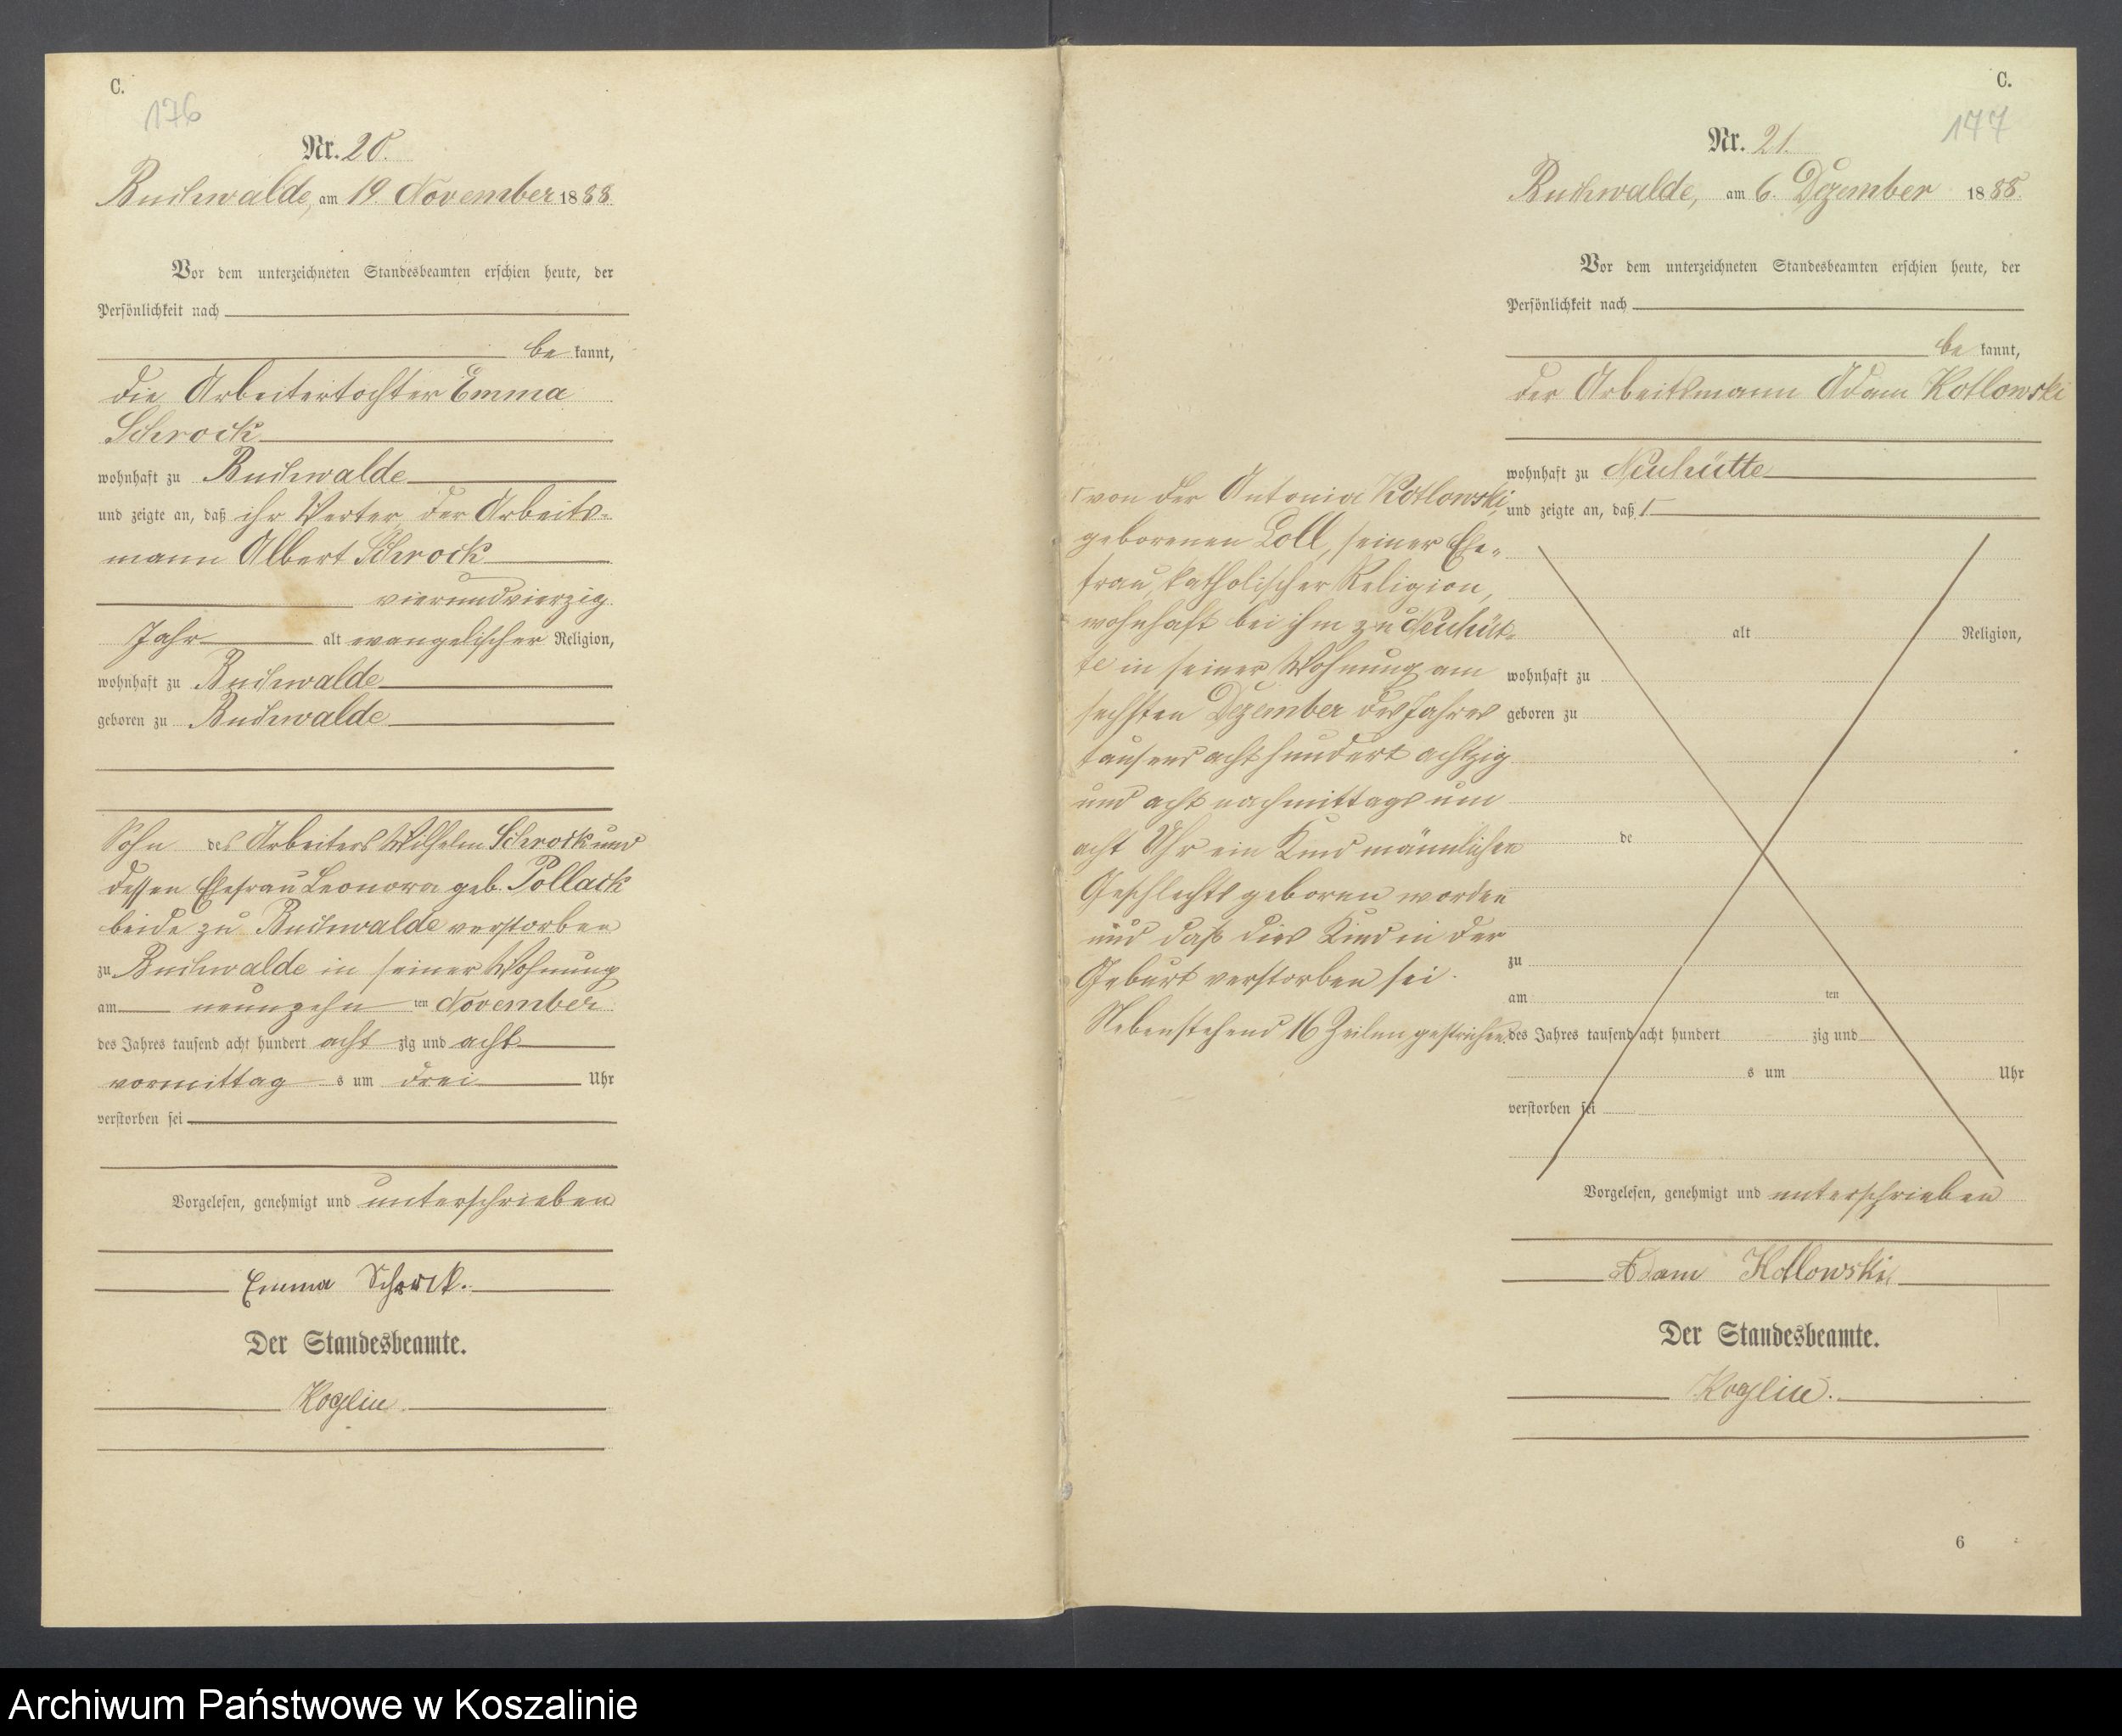 C.
176
Nr. 20.
Buchwalde, am 19 November 1888.
Vor dem unterzeichneten Standesbeamten erschien heute, der
Persönlichkeit nach
be kannt,
die Arbeitertochter Emma
Schrock
wohnhaft zu Buchwalde
und zeigte an, daß ihr Vater, der Arbeits-
mann Albert Schrock
vierundvierzig
Jahr alt evangelischer Religion,
wohnhaft zu Buchwalde
geboren zu Buchwalde
Sohn des Arbeiters Wilhelm Schrock und
dessen Ehefrau Leonora geb. Pollack
beide zu Buchwalde verstorben
zu Buchwalde in seiner Wohnung
am neunzehn ten November
des Jahres tausend acht hundert acht zig und acht
vormittag s um drei Uhr
verstorben sei
Vorgelesen, genehmigt und unterschrieben
Emma Schrock.
Der Standesbeamte.
Koglin.
C.
177
Nr. 21.
Buchwalde, am 6. Dezember 1888.
Vor dem unterzeichneten Standesbeamten erschien heute, der
Persönlichkeit nach
be kannt,
der Arbeitsmann Adam Kotlowski
wohnhaft zu Neuhütte
und zeigte an, daß Γ
Γ von der Antonia Kotlowski,
geborenen Loll, seiner Ehe-
frau, katholischer Religion,
wohnhaft bei ihm zu Neuhüt-
te in seiner Wohnung am
sechsten Dezember des Jahres
tausend acht hundert achtzig
und acht nachmittags um
acht Uhr ein Kind männlichen
Geschlechts geboren worden
und daß dies Kind in der
Geburt verstorben sei.
Nebenstehend 16 Zeilen gestrichen.
alt Religion,
wohnhaft zu
geboren zu
de
zu
am ten
des Jahres tausend acht hundert zig und
s um Uhr
verstorben sei
Vorgelesen, genehmigt und unterschrieben
Adam Kotlowski
Der Standesbeamte.
Koglin.
6
Archiwum Państwowe w Koszalinie